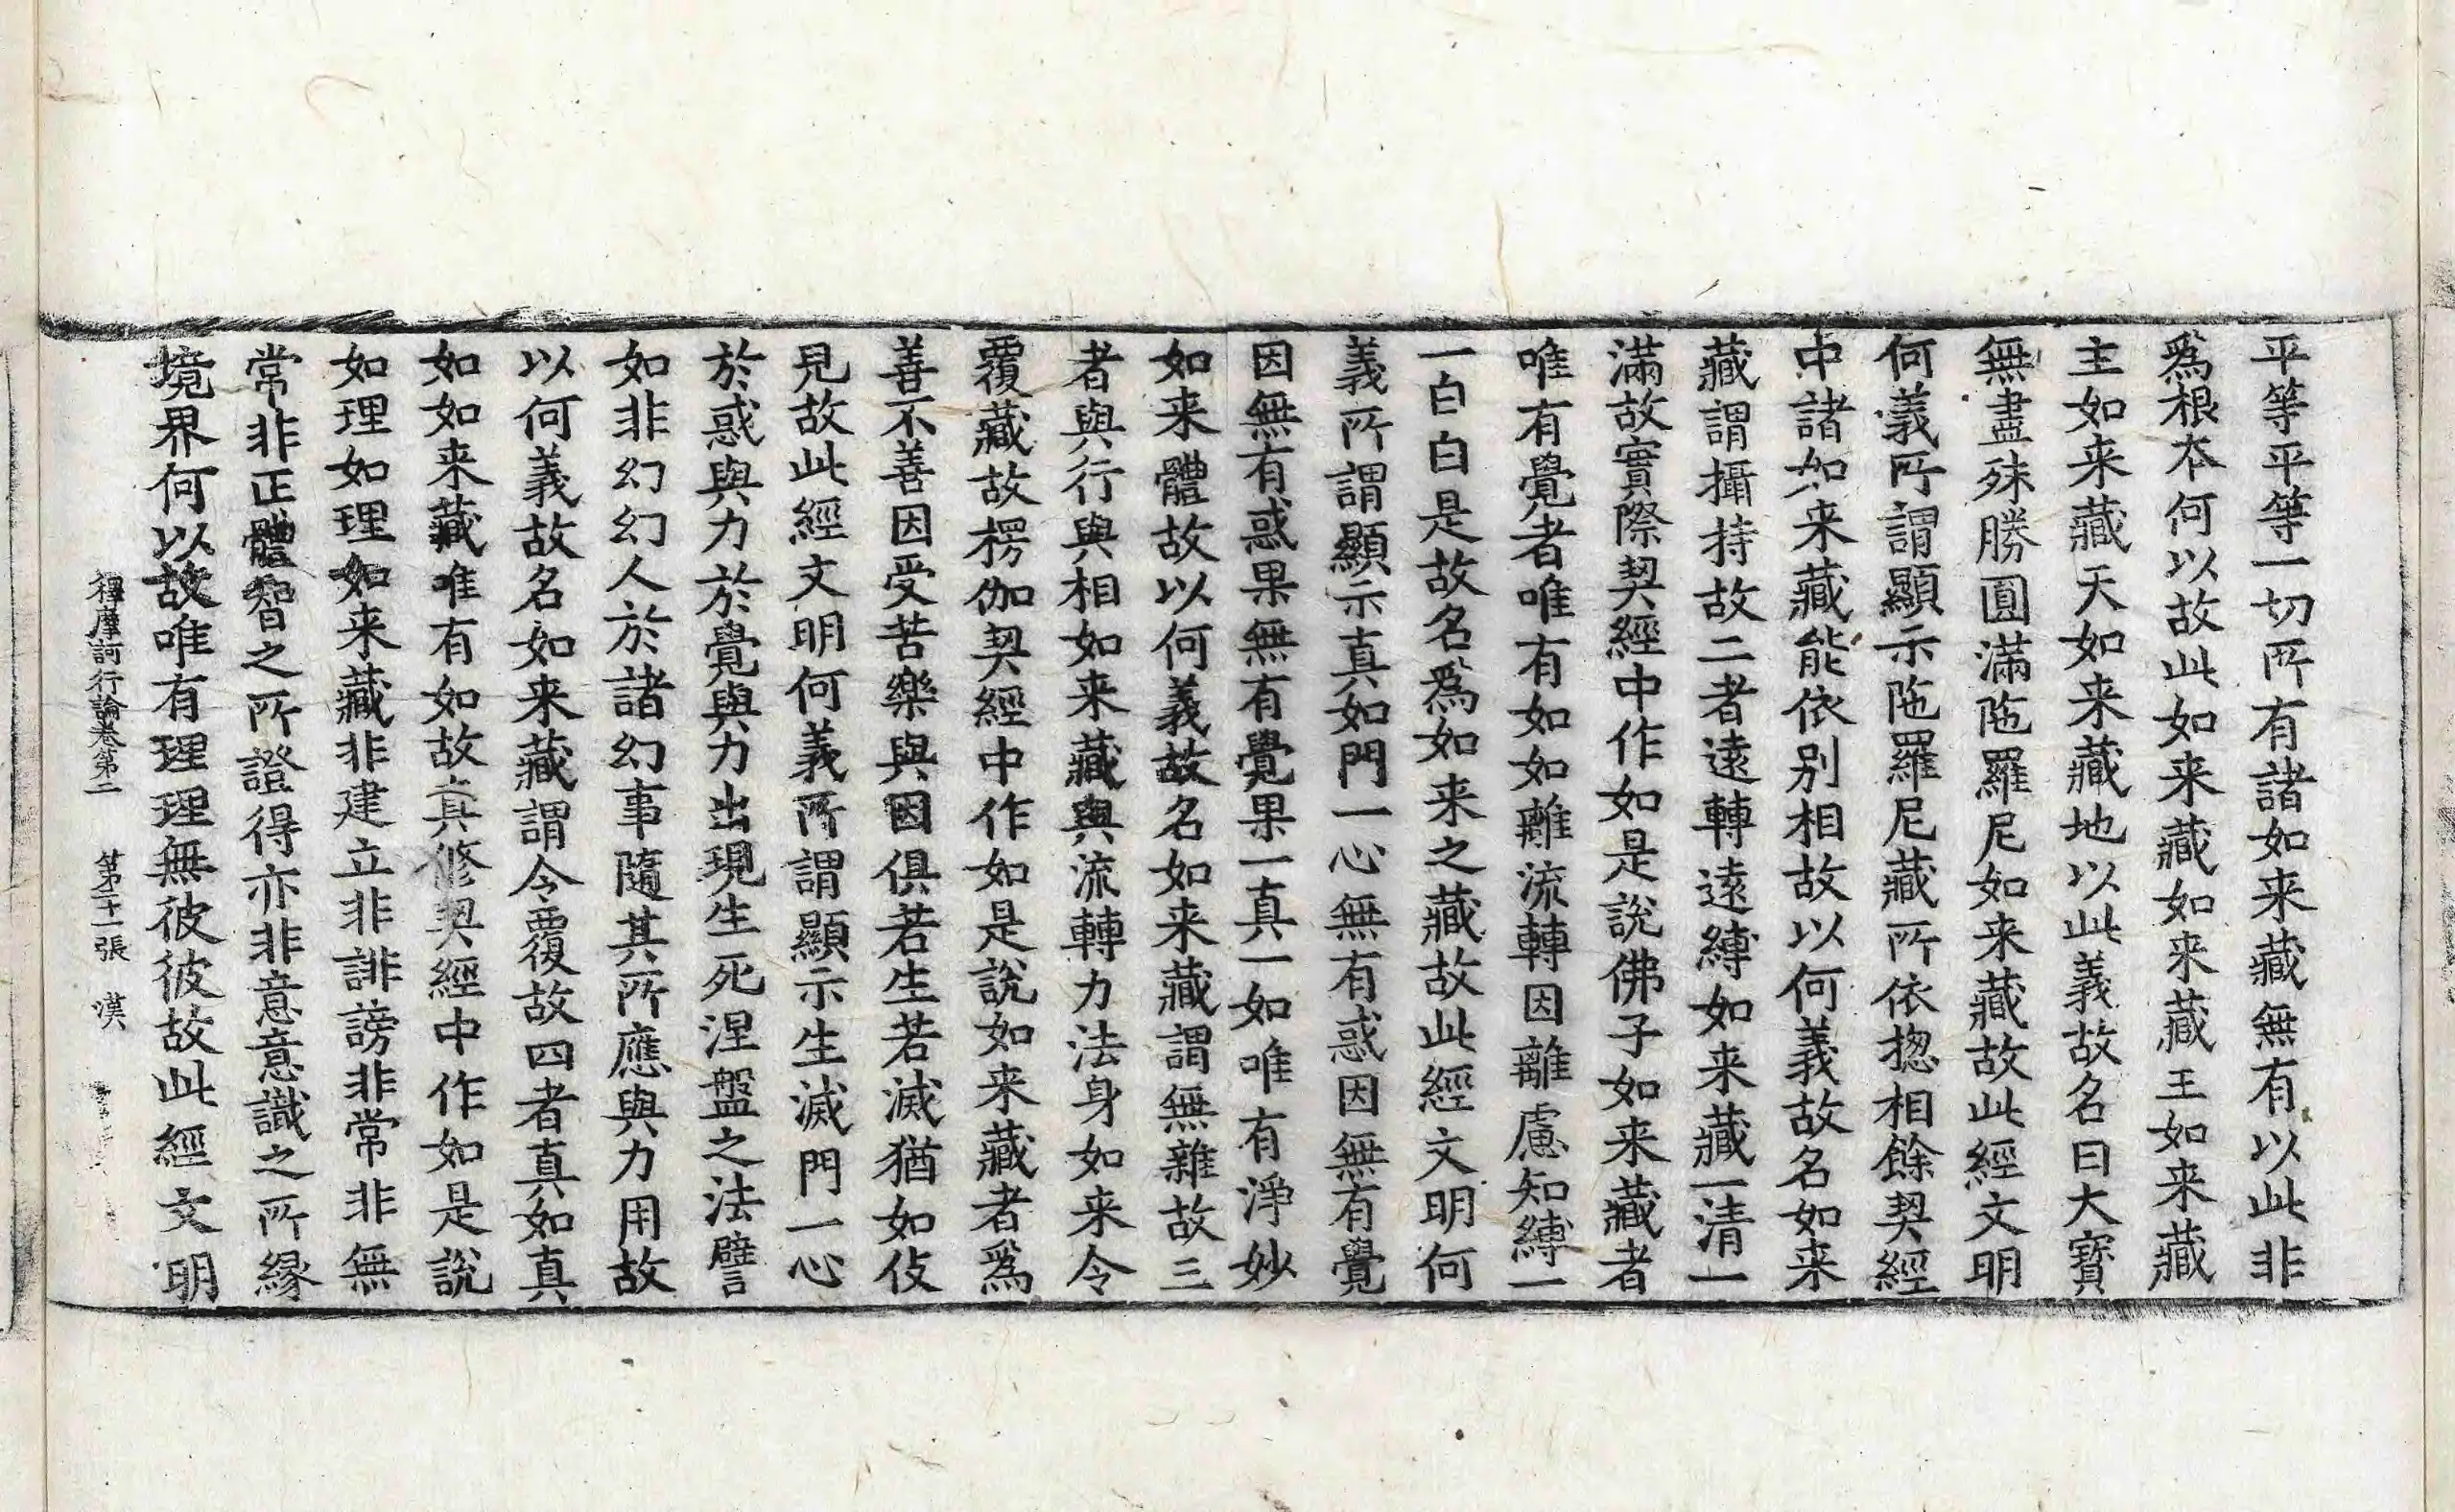 平等平等一切所有諸如来藏無有以此非
爲根夲何以故此如来藏如来藏王如来藏
主如来藏天如来藏地以此義故名曰大寶
無盡殊勝圓滿陁羅尼如来藏故此經文明
何義所謂顯示陁羅尼藏所依揔相餘契經
中諸如来藏能依別相故以何義故名如来
藏謂攝持故二者遠轉遠縛如来藏一清一
滿故實際契經中作如是說佛子如来藏者
唯有覺者唯有如如離流轉因離慮知縛一
一白白是故名爲如来之藏故此經文明何
義所謂顯示真如門一心無有惑因無有覺
因無有惑果無有覺果一真一如唯有淨妙
如来體故以何義故名如来藏謂無雜故三
者與行與相如来藏與流轉力法身如来令
覆藏故楞伽契經中作如是說如来藏者爲
善不善因受苦樂與因俱若生若滅猶如伎
兒故此經文明何義所謂顯示生滅門一心
於惑與力於覺與力出現生死涅盤之法譬
如非幻幻人於諸幻事隨其所應與力用故
以何義故名如来藏謂令覆故四者真如真
如如来藏唯有如故真修契經中作如是說
如理如理如来藏非建立非誹謗非常非無
常非正體智之所證得亦非意意識之所緣
境界何以故唯有理理無彼彼故此經文明
釋摩訶衍論卷第二　第二十一張　漢